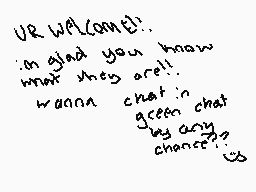 UR WELCOME!!.
im glad you know
what they are!!.
wanna chat in
green chat
by any
chance??
:)